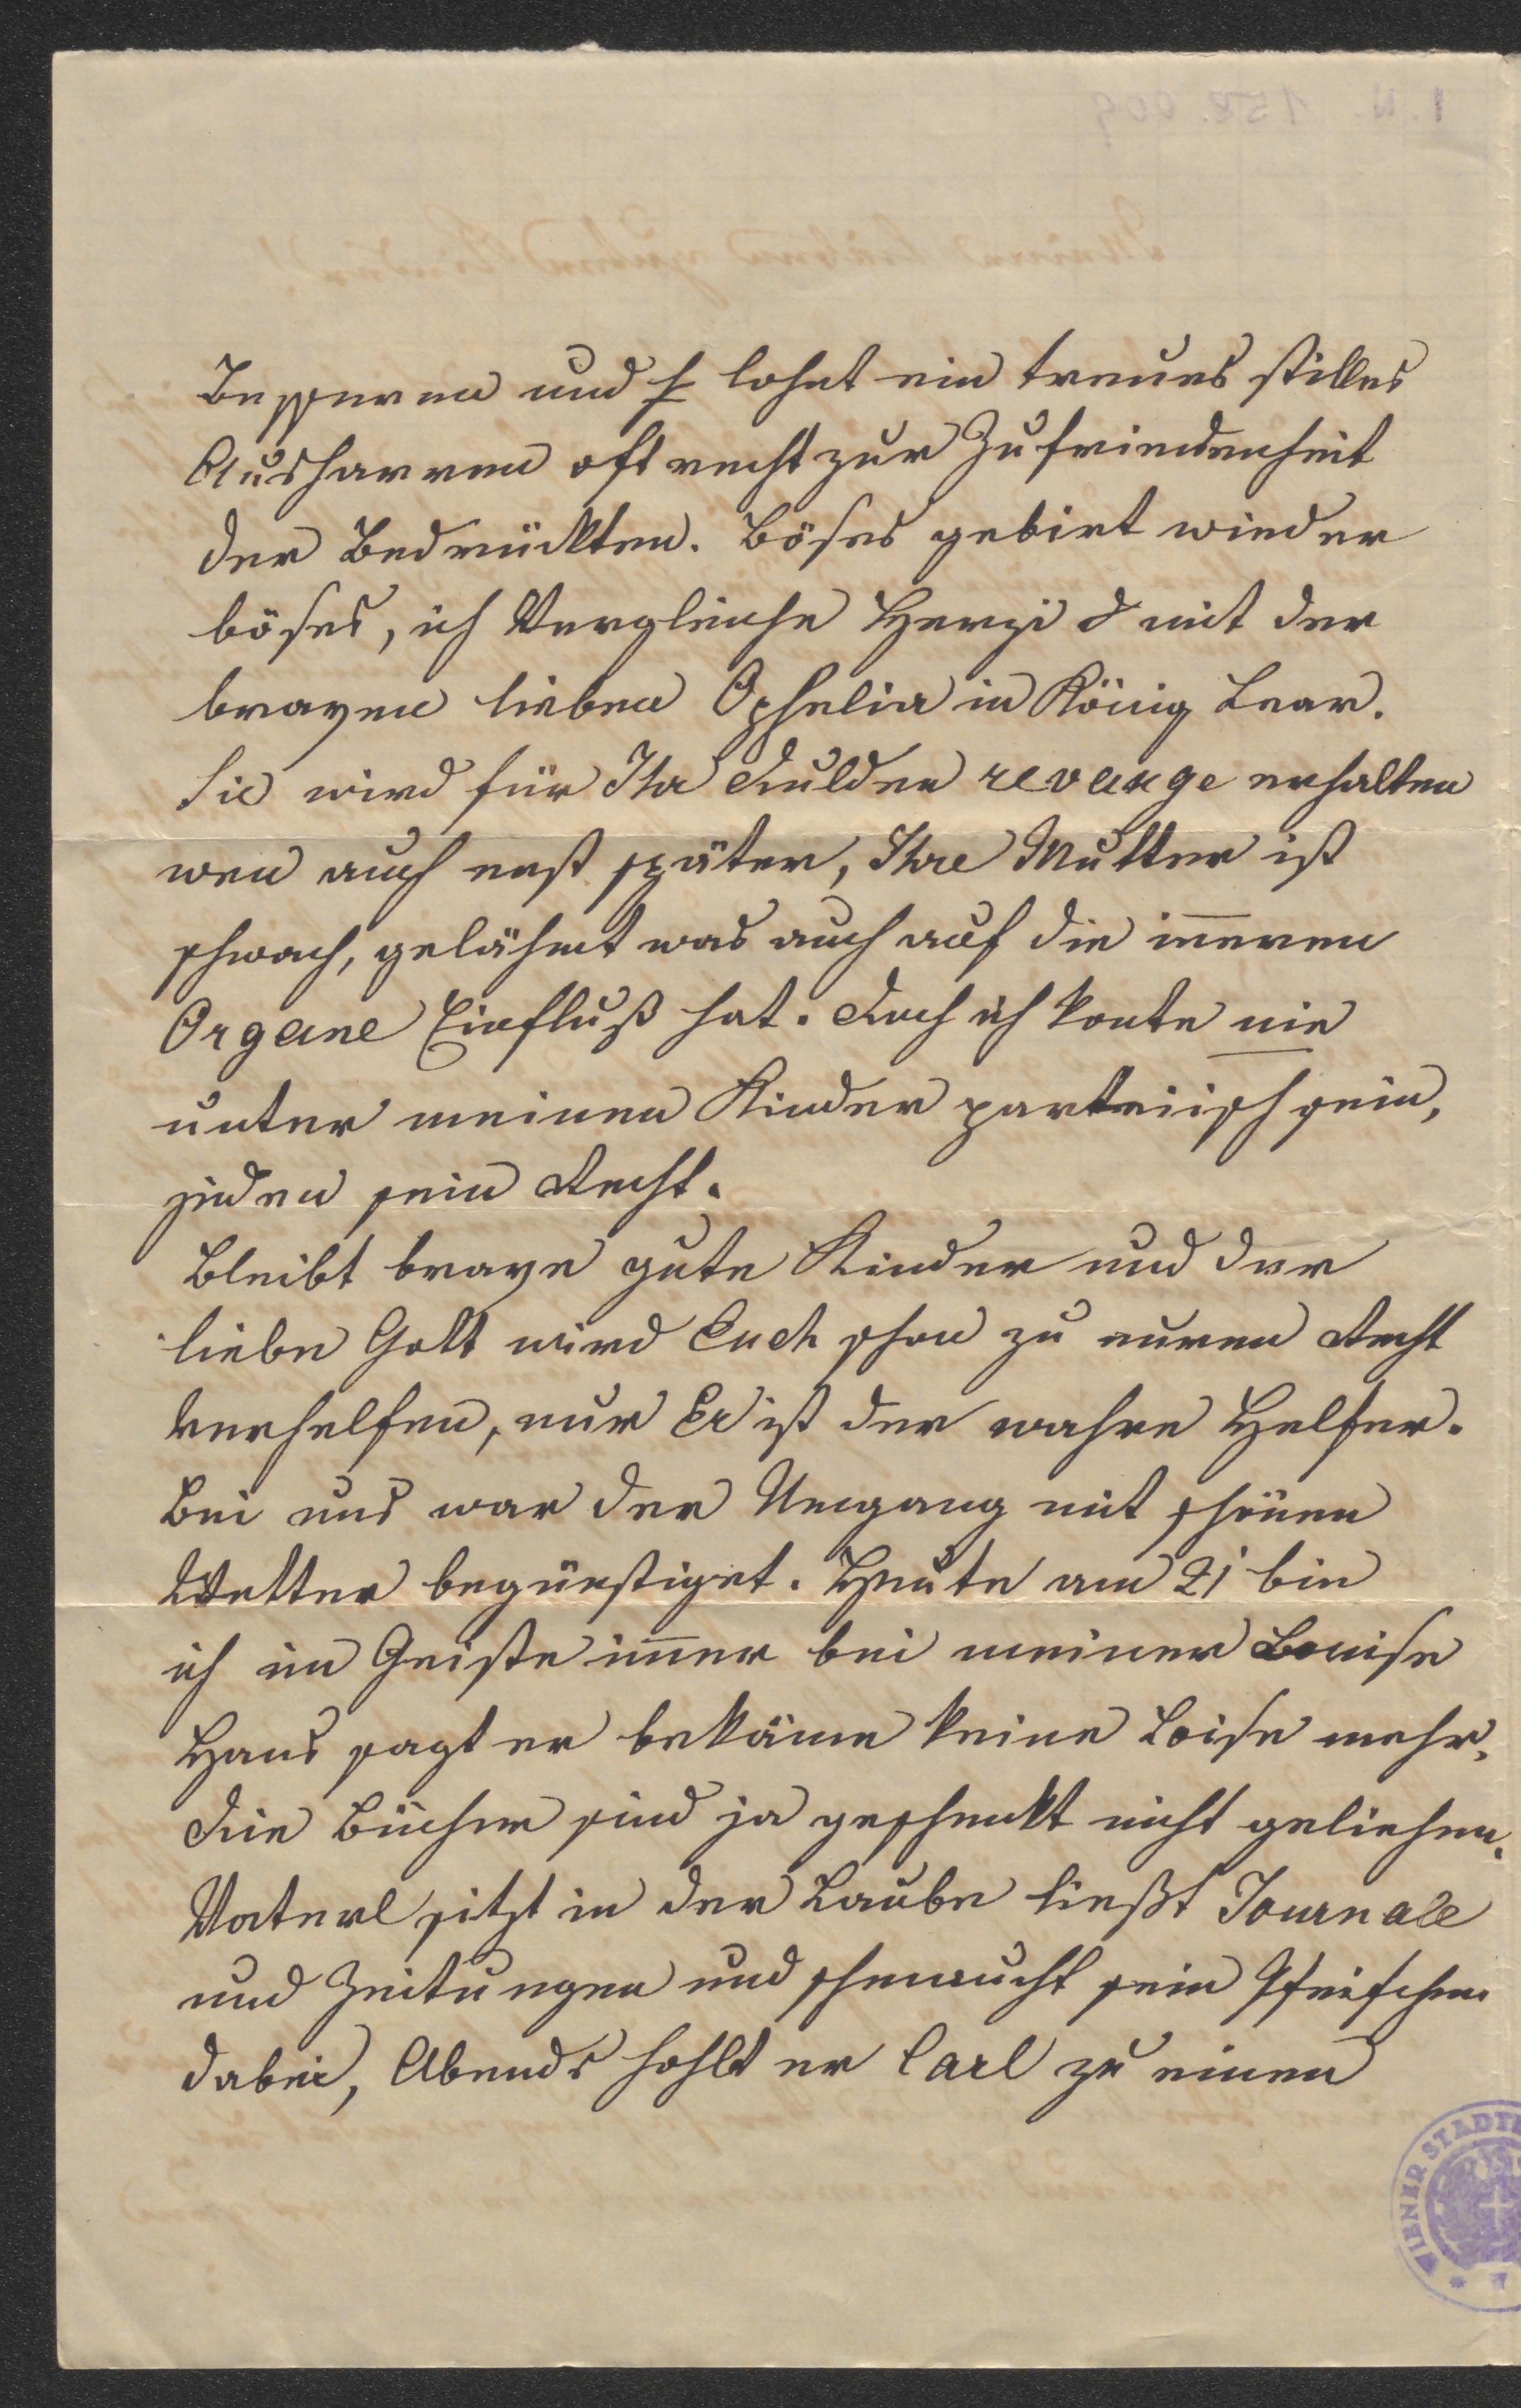 Besseren und lohnt ein treues stilles
Ausharren oft recht zur Zufriedenheit
der Bedrückten. Böses gebirt wieder
böses, ich Vergleiche Herzi mit der
braven lieben Ophelia in König Lear.
Sie wird für Ihr Dulden revange erhalten
wen auch erst später, Ihre Mutter ist
schwach, gelähmt was auch auf die in̄eren
Organe Einfluß hat. Doch ich konte nie
unter meinen Kinder parteiisch sein,
jeden sein Recht.
Bleibt brave gute Kinder und der
liebe Gott wird Euch schon zu euren Recht
verhelfen, nur Er ist der wahre Helfer.
Bei uns war der Umgang mit schönen
Wetter begünstiget. Heute am 21 bin
ich im Geiste im̄er bei meiner Louise
Hans sagt er bekäme keine Loise mehr.
Die Bücher sind ja geschenkt nicht geliehen.
Vaterl sitzt in der Laube ließt Journale
und Zeitungen und schmaucht sein Pfeifchen
dabei, Abends hohlt er Carl zu einen
WIENER STADT